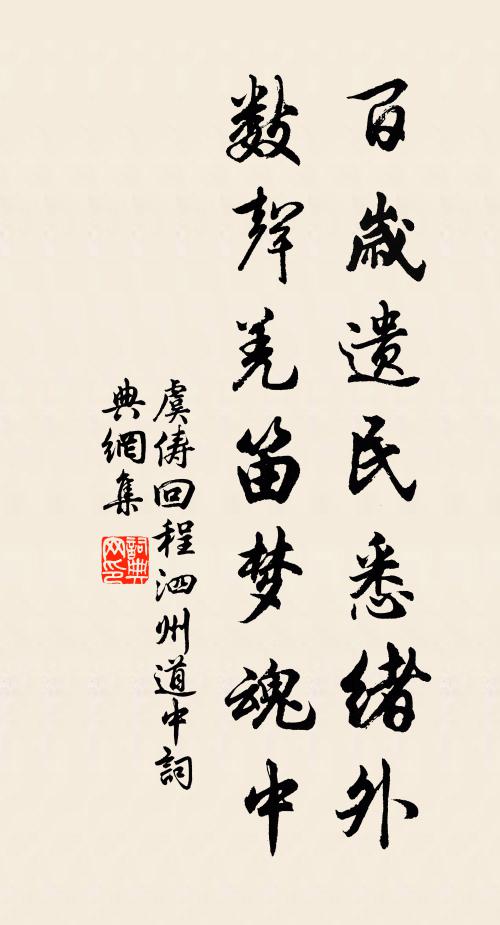 百歲遺民悉緒外
數聲羌笛梦魂中
虞儔回程泗州道中詞
典網集
詞典
网印